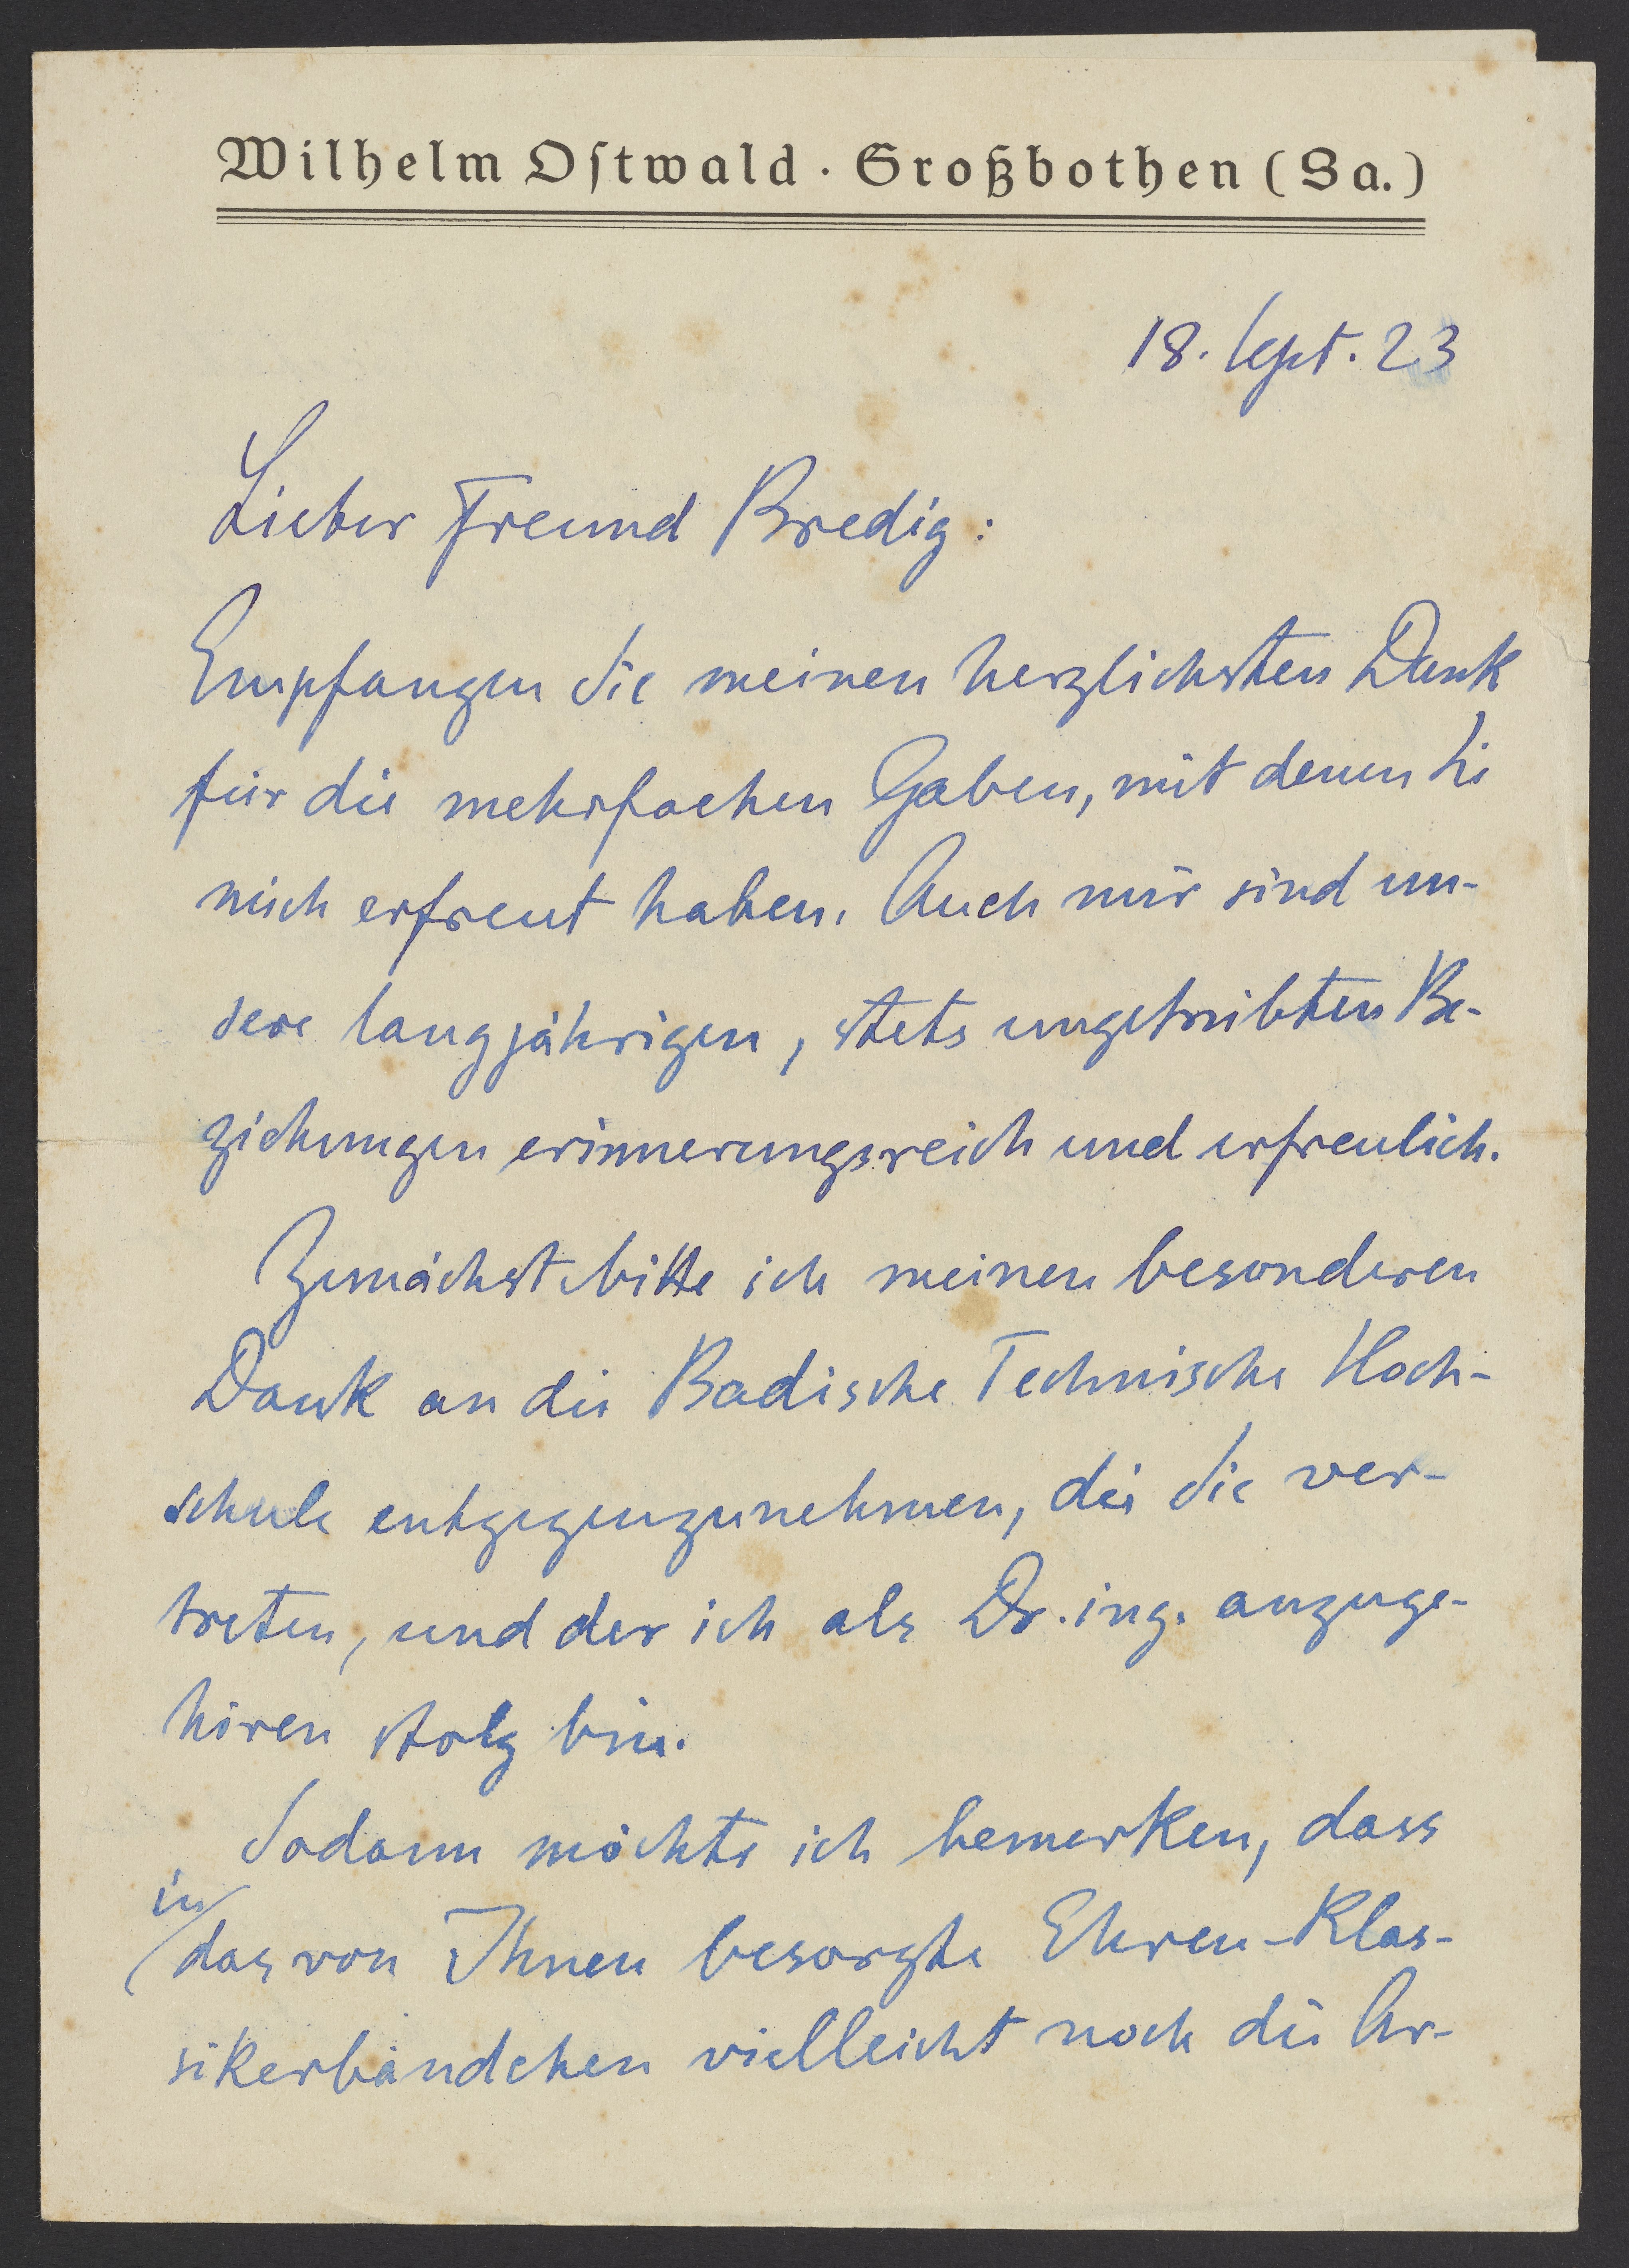 Wilhelm Ostwald · Großbothen (Sa.)
18. Sept. 23
Lieber Freund Bredig:
Empfangen Sie meinen herzlichsten Dank
für die mehrfachen Gaben, mit denen Sie
mich erfreut haben. Auch mir sind un-
sere langjährigen, stets ungetrübten Be-
ziehungen erinnerungsreich und erfreulich.
Zunächst bitte ich meinen besonderen
Dank an die Badische Technische Hoch-
schule entgegenzunehmen, die Sie ver-
treten, und der ich als Dr. ing. anzuge-
hören stolz bin.
Sodann möchte ich bemerken, dass
in
das von Ihnen besorgte Ehren-Klas-
sikerbändchen vielleicht noch die Ar-